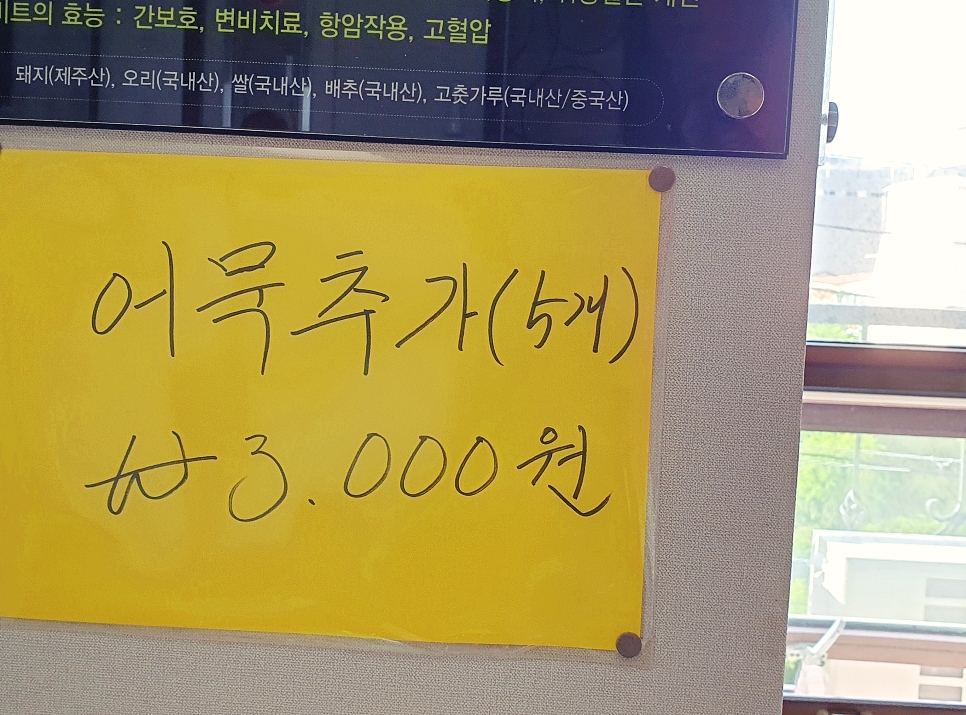 트의 효능 : 간보호, 변비치료, 항암작용, 고혈압
돼지(제주산), 오리(국내산), 쌀(국내산), 배추(국내산), 고춧가루(국내산/중국산)
어묵추가(5개)
₩3.000원